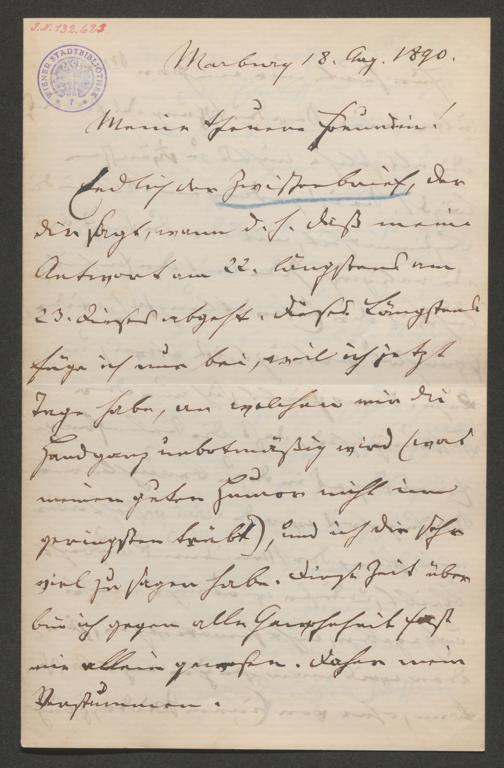 J.N. 132.623
WIENER STADTBIBLIOTHEK
Marburg 18. Aug. 1890.
Meine theuere Freundin!
Endlich der Zwischenbrief, der
dir sagt, wann d. h. daß meine
Antwort am 22. längstens am
23. dieses abgeht. Dieses Längstens
füge ich nur bei, weil ich jetzt
Tage habe, an welchen mir die
Hand ganz unbotmäßig wird (was
meinen guten Humor nicht im
geringsten trübt), und ich dir sehr
viel zu sagen habe. Diese Zeit über
bin ich gegen alle Gewohnheit fast
nie allein gewesen. Daher mein
Verstummen.